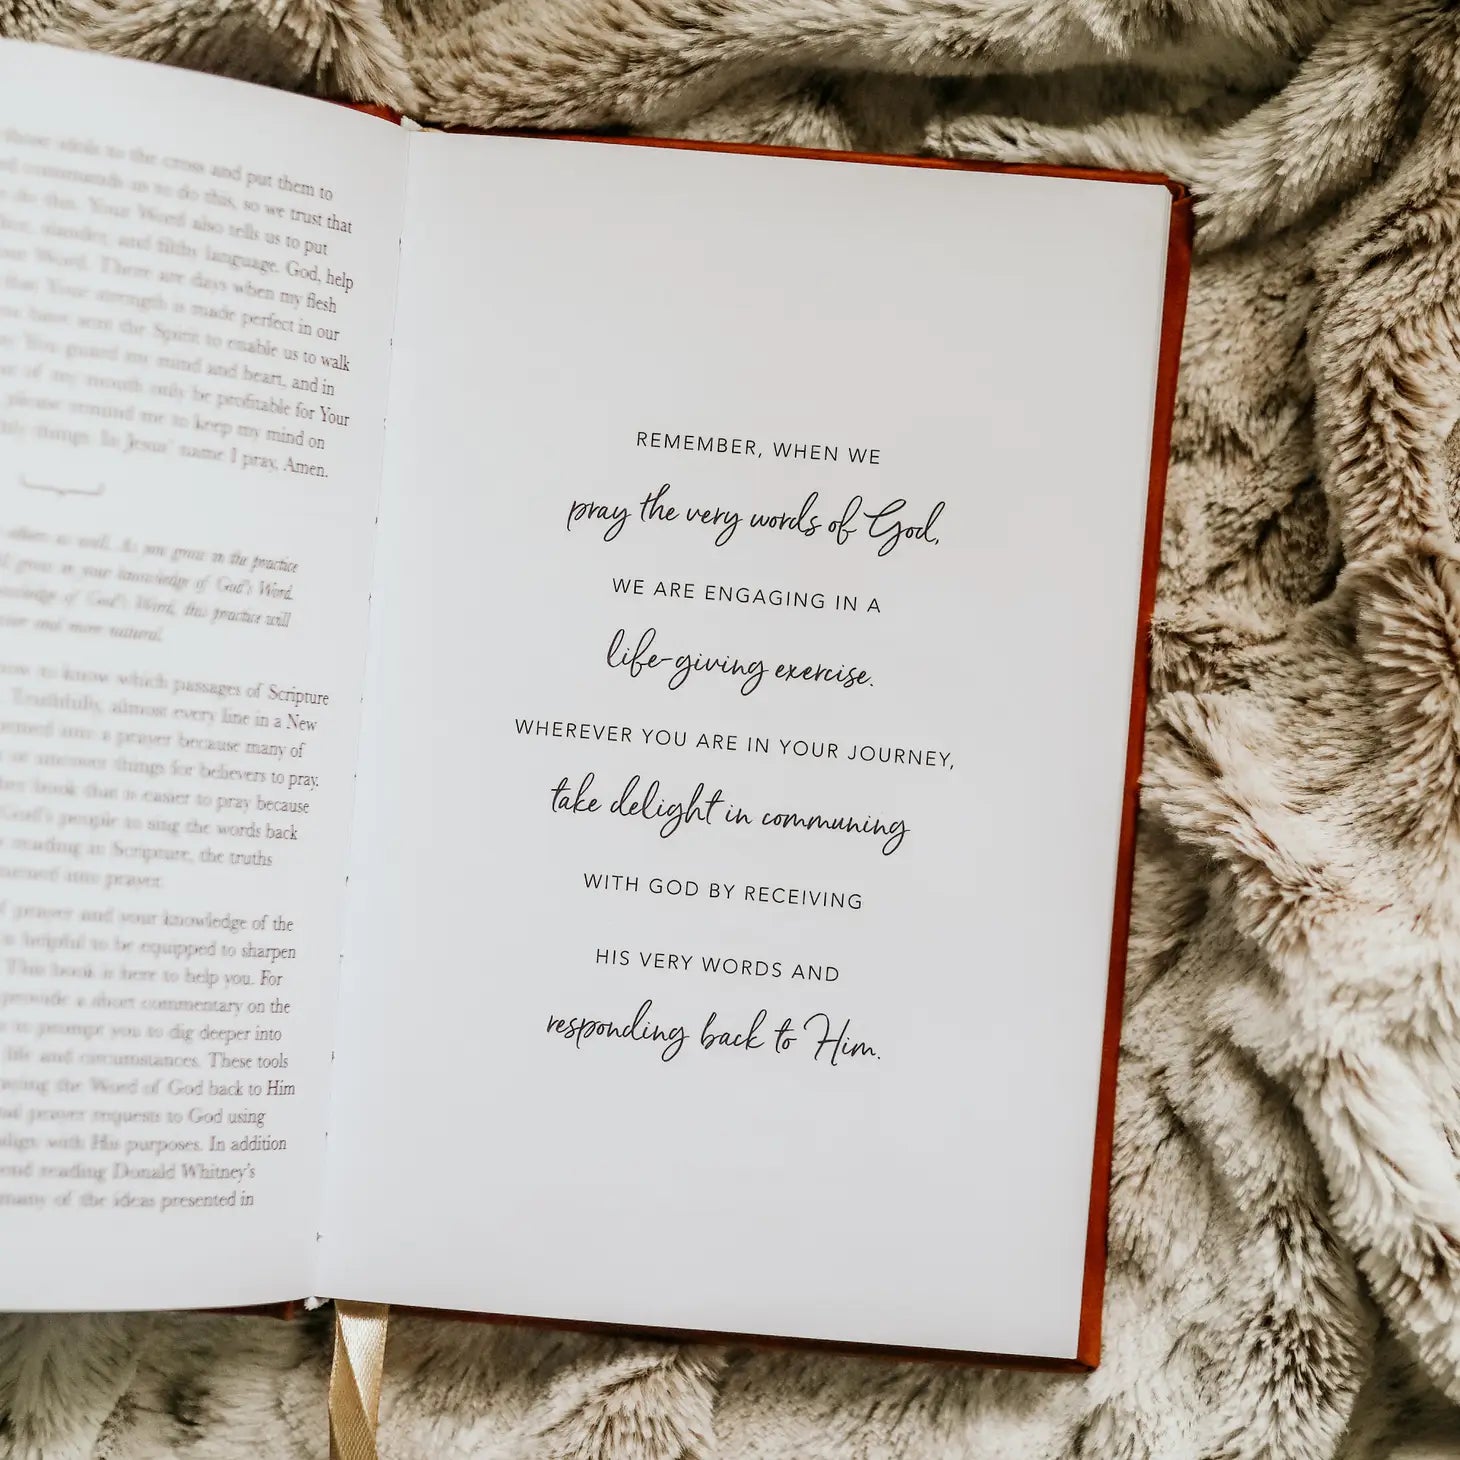 those idols to the cross and put them to
commands us to do this, so we trust that
do this. Your Word also tells us to put
slander, and filthy language. God, help
Word. There are days when my flesh
that Your strength is made perfect in our
have sent the Spirit to enable us to walk
You guard my mind and heart, and in
of my mouth only be profitable for Your
please remind me to keep my mind on
things. In Jesus' name I pray, Amen.
others as well. As you grow in the practice
grow in your knowledge of God's Word.
knowledge of God's Word, this practice will
and more natural.
to know which passages of Scripture
Truthfully, almost every line in a New
turned into a prayer because many of
or uncover things for believers to pray.
book that is easier to pray because
God's people to sing the words back
reading in Scripture, the truths
turned into prayer.
prayer and your knowledge of the
is helpful to be equipped to sharpen
This book is here to help you. For
provide a short commentary on the
to prompt you to dig deeper into
life and circumstances. These tools
praying the Word of God back to Him
prayer requests to God using
align with His purposes. In addition
reading Donald Whitney's
many of the ideas presented in
REMEMBER, WHEN WE
pray the very words of God,
WE ARE ENGAGING IN A
life-giving exercise.
WHEREVER YOU ARE IN YOUR JOURNEY,
take delight in communing
WITH GOD BY RECEIVING
HIS VERY WORDS AND
responding back to Him.